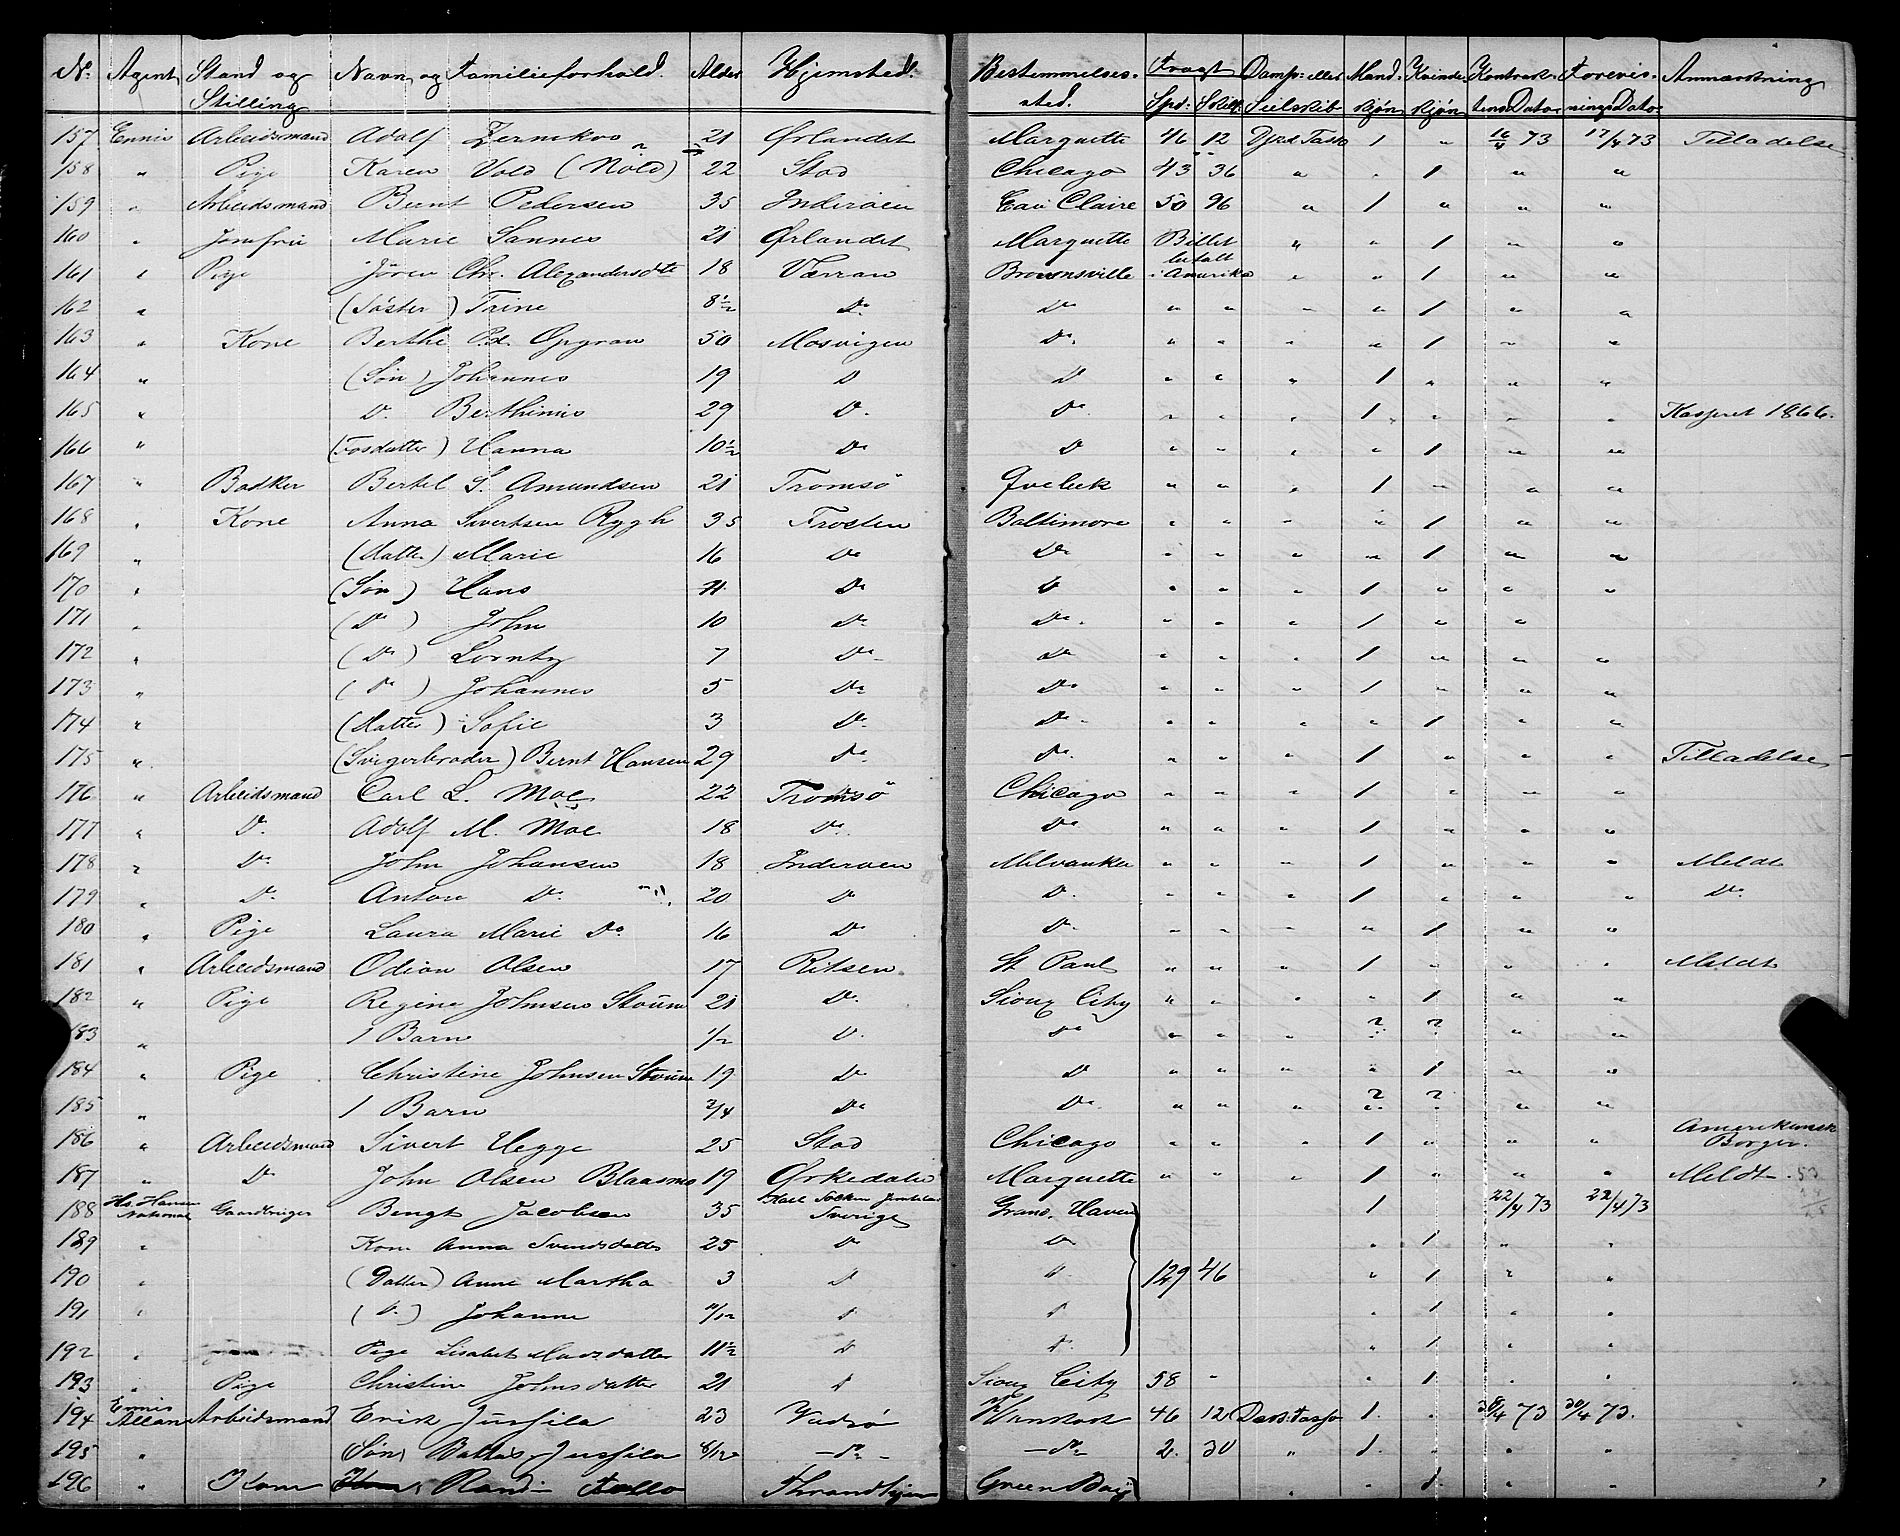 No. Agent Stand og Stilling Navn og Familieforhold. Alder Hjemsted. Bestemmelses-sted. Fragt Spd: Skill: Damp- eller Seilskib Mand-kjøn Kvinde-kjøn Kontrak-tens Dato Forevis-nings Dato Anmærkning
157 Ennis Arbeidsmand Adolf 21 Ørlandet Marquette 46 12 Tasso 1 " 16/4 73 17/4 73 Tilladelse
158 " Pige Karen Vold (Nöld) 22 Stod Chicago 43 36 " " 1 " "
159 " Arbeidsmand Bernt Pedersen 35 Inderøen Eau Claire 50 96 " 1 " " "
160 " Jomfru Marie Sannes 21 Ørlandet Marquette Billet " " 1 " "
161 " Pige Jören Chr. Alexandersdtr 18 Værran Brownsville betalt i Amerika " " 1 " "
162 " (Søster) Trine 8½ Do Do " " " " 1 " "
163 " Kone Berthe Pd. Opgran 50 Mosvigen Do " " " " 1 " "
164 " (Søn) Johannes 19 D D " " " 1 " " "
165 " D. Berthinus 29 D. Do " " " 1 " " " Kasseret 1866.
166 " (Fosdatter) Hanna 10½ Do D " " " " 1 " "
167 " Bødker Bertel S. Amundsen 21 Tromsö Qvebek " " " 1 " " "
168 " Kone Anna Sivertsen Rygh 35 Frosten Baltimore " " " " 1 " "
169 " (datter) Marie 16 Do Do " " " " 1 " "
170 " (Søn) Hans 11 Do D " " " 1 " " "
171 " (Do) John 10 Do Do " " " 1 " "
172 " (Do) Lornty 7 Do Do " " " 1 " " "
173 " (Do) Johannes 5 Do Do " " " 1 " " "
174 " (datter) Sofie 3 Do Do " " " " 1 " "
175 " (Svigerbroder) Bernt Hansen 29 Do Do " " " 1 " " " Tilladelse
176 " Arbeidsmand Carl L. Moe 22 Tromsö Chicago " " " 1 " " "
177 " D. Adolf M. Moe 18 Do Do " " " 1 " " "
178 " Do John Johansen 18 Inderøen Milvauke " " " 1 " " " Meldt
179 " D. Anton Do 20 D D. " " " 1 " " " Do
180 " Pige Laura Marie Do 16 Do D. " " " " 1 " "
181 " Arbeidsmand Odion Olsen 17 Ritsen St Paul " " " 1 " " " Meldt
182 " Pige Regine Johnsen Stoum 21 D. Sioux City " " " " 1 " "
183 " 1 Barn ½ D. Do " " " ? ? " "
184 " Pige Christine Johnsen Stoum 19 Do D " " " " 1 " "
185 " 1 Barn ¾ Do Do " " " ? ? " "
186 " Arbeidsmand Sivert Hegge 25 Stod Chicago " " " 1 " " " Amerikansk Borger.
187 " Do John Olsen Blaasmo 19 Ørkedalen Marquette " " " 1 " " " Meldt. 53
188 Hs. Hansen National Gaardbruger Bengt Jacobsen 35 Sverige Grand Haven 1 22/4 73 22/4 73
189 " Kone Anna Svendsdatter 25 D Do " 1 " "
190 " (Datter) Anne Martha 3 D D. 129 46 " 1 " "
191 " (D.) Johanne 11/12 D D " 1 " "
192 " Pige Lisabet Madsdatter 11½ D D. " 1 " "
193 " Pige Christine Johnsdatter 21 D Sioux City 58 " " 1 " "
194 Ennis Allan Arbeidsmand Erik Jussila 23 Vadsø 46 12 Tasso 1. " 30/4 73 30/4 73.
195 " (Søn) Jussila 8/12 – Do – – Do – 2. 30 " 1. " " "
196 " Kone Follo Throndhjem Green Bay " " 1. " "